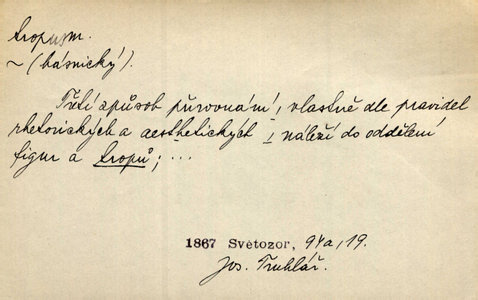 tropus m.
~ (básnický).
Třetí způsob přirovnání, vlastně dle pravidel
rhetorických a aesthetických náleží do oddělení
figur a tropů; ...
1867 Světozor, 94a, 19.
Jos. Truhlář.